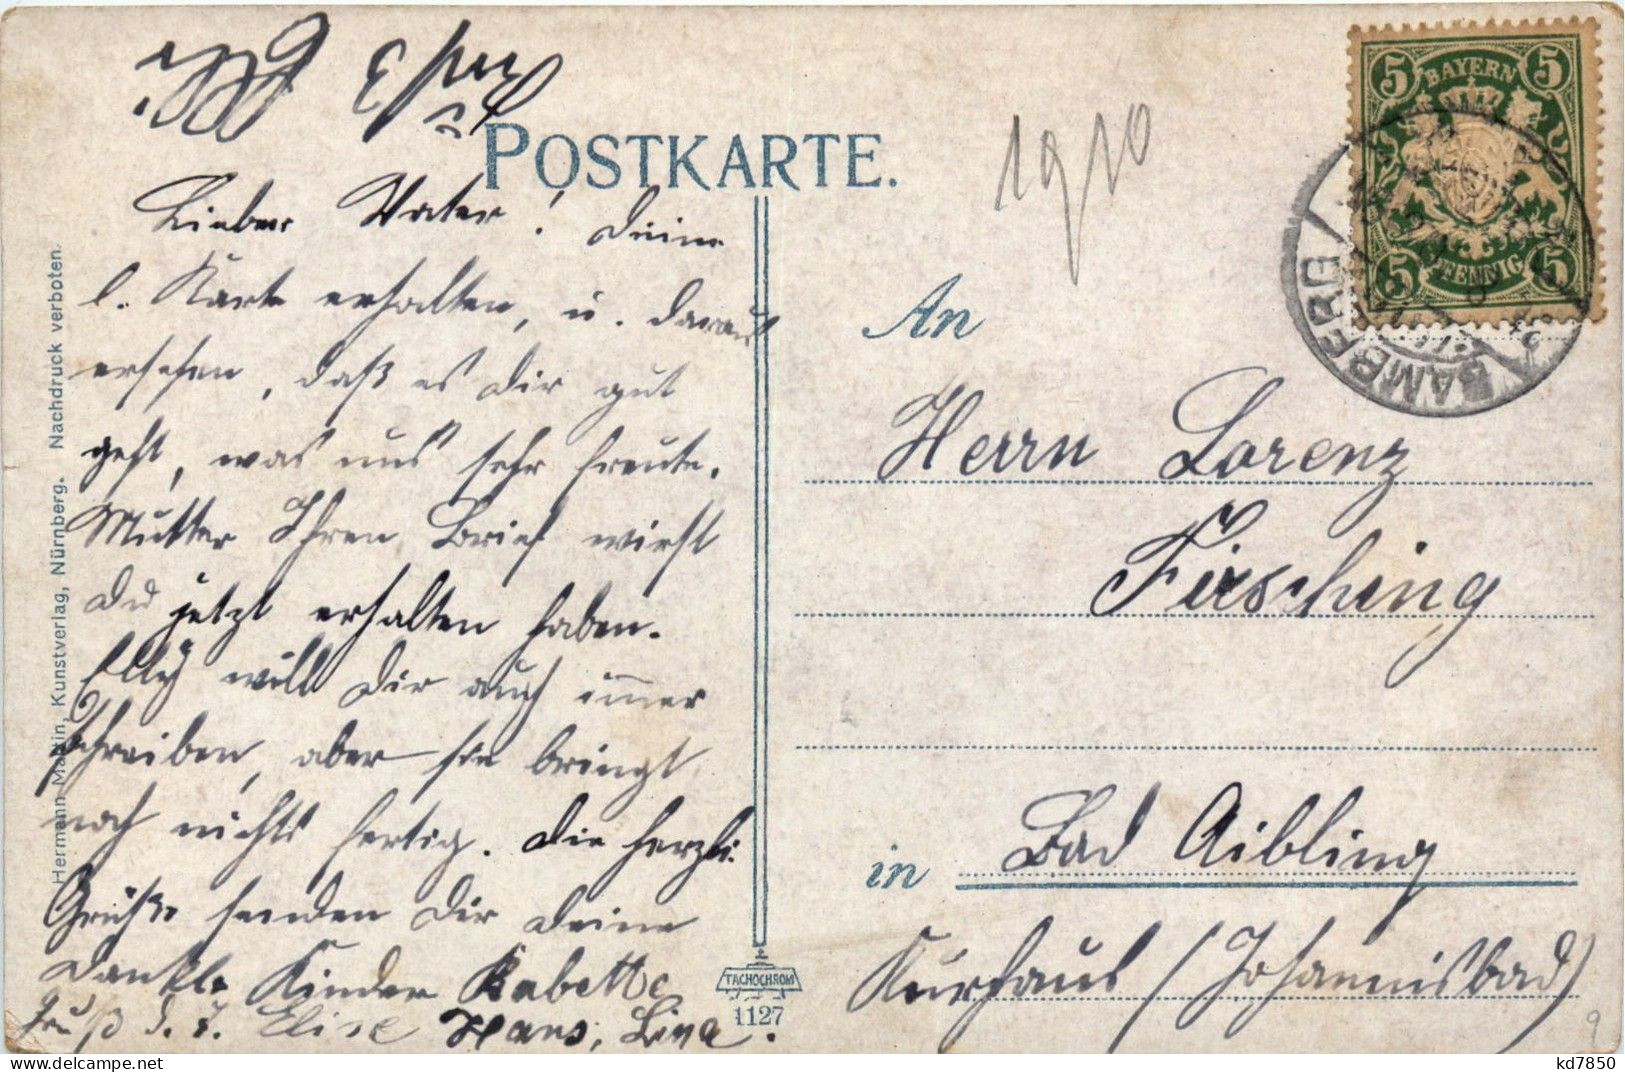 POSTKARTE.
Lieber Vater! Deine
l. Karte erhalten, u. daraus
ersehen, daß es Dir gut
geht, was uns sehr freute.
Mutter Ihren Brief wirst
Du jetzt erhalten haben.
Elly will Dir auch immer
schreiben, aber sie bringt
noch nichts fertig. Die herzli.
Grüße senden Dir Deine
dankb. Kinder Babette
Gruß Elise Hans, Lina.
Hermann Martin, Kunstverlag, Nürnberg. Nachdruck verboten.
TACHOCHROM
1127
1910
BAYERN
5 5
5 5
PFENNIG
BAMBERG
An
Herrn Lorenz
Firsching
in Bad Aibling
Kurhaus (Johannisbad)
9
kd7850